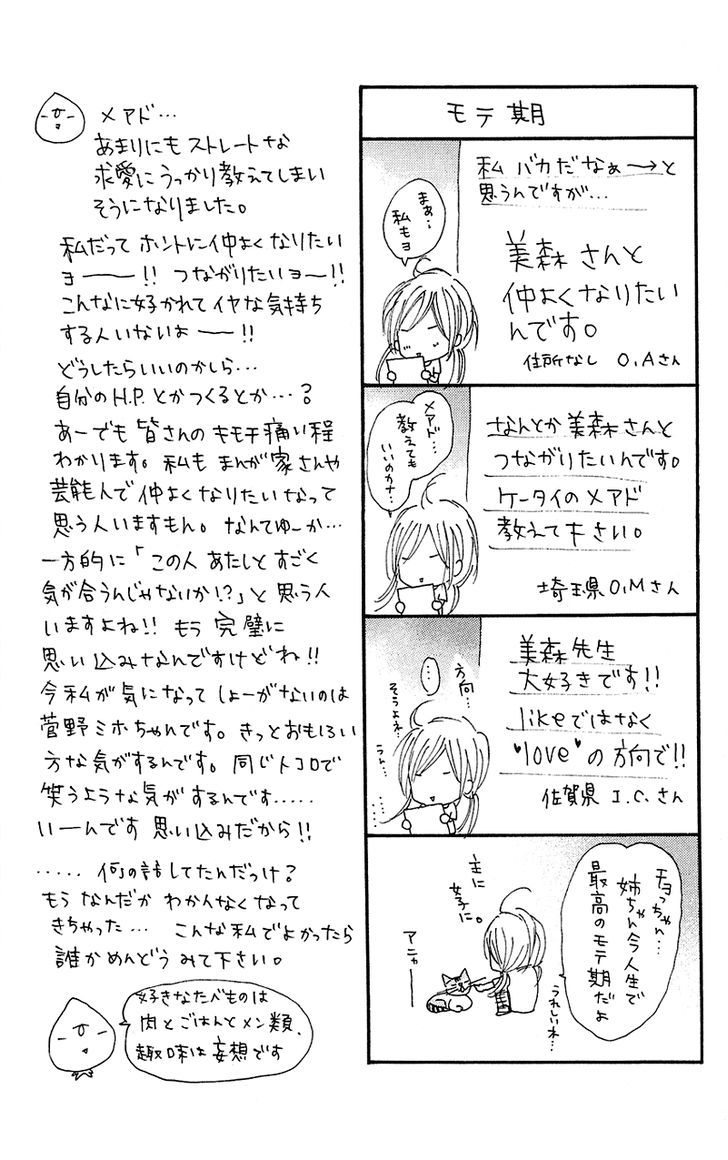 モテ期
私 バカだなぁ〜→と
思うんですが…
美森 さんと
仲よくなりたい
んです。
住所なし O.Aさん
まぁ…
私もヨ
なんとか美森さんと
つながりたいんです。
ケータイのメアド
教えて下さい。
埼玉県O.Mさん
メアド…
教えても
いいのかナ…
美森先生
大好きです!!
likeではなく
"love"の方向で!!
佐賀県 I.C.さん
方向…
…
そうよネ…
うん…
チョっちゃん…
姉ちゃん今人生で
最高のモテ期だよ
うれしいネ…
主に
女子に。
アニャー
メアド…
あまりにもストレートな
求愛にうっかり教えてしまい
そうになりました。
私だって ホントに仲よくなりたい
ヨーーー!! つながりたいヨ〜!!
こんなに好かれてイヤな気持ち
する人いないよー!!
どうしたらいいのかしら…
自分のH.P.とかつくるとか…?
あーでも 皆さんのキモチ痛い程
わかります。私も まんが家さんや
芸能人で仲よくなりたいなって
思う人いますもん。なんてゆーか…
一方的に「この人 あたしとすごく
気が合うんじゃないか!?」と 思う人
いますよね!! もう 完璧に
思い込みなんですけどね!!
今私が気になって しょーがないのは
菅野ミホちゃんです。きっとおもしろい
方な気がするんです。同じトコロで
笑うような気がするんです.....
いーんです 思い込みだから!!
..... 何の話してたんだっけ?
もう なんだか わかんなくなって
きちゃった… こんな私でよかったら
誰かめんどう みて下さい。
好きなたべものは
肉とごはんとメン類、
趣味は妄想です